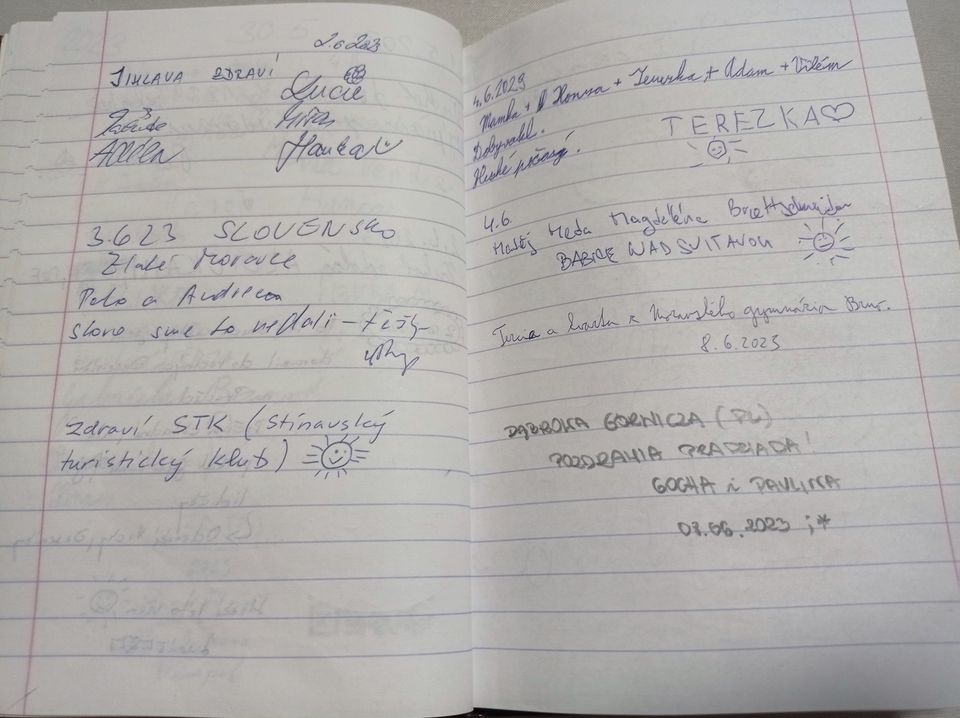 2.6.2023
JIHLAVA ZDRAVÍ
Lucie
Adélka
3.6.23 SLOVENSKO
Zlaté Moravce
Palo a Andrea
slovo sme to nedali –
Zdraví STK (Stínavský
turistický klub)
4.6.2023
Mamka + Honza + Terezka + Adam + Vilém
Dobyvatel.
Hezké počasí.
TEREZKA
4.6.
Matěj Meda Magdaléna Brettschneider
BABICE NAD SVITAVOU
a z Moravského gymnázia Brno.
8.6.2023
DĄBROWA GÓRNICZA (PL)
POZDRAWIA PRADZIADA!
GOCHA i PAULINA
07.06.2023 ;*